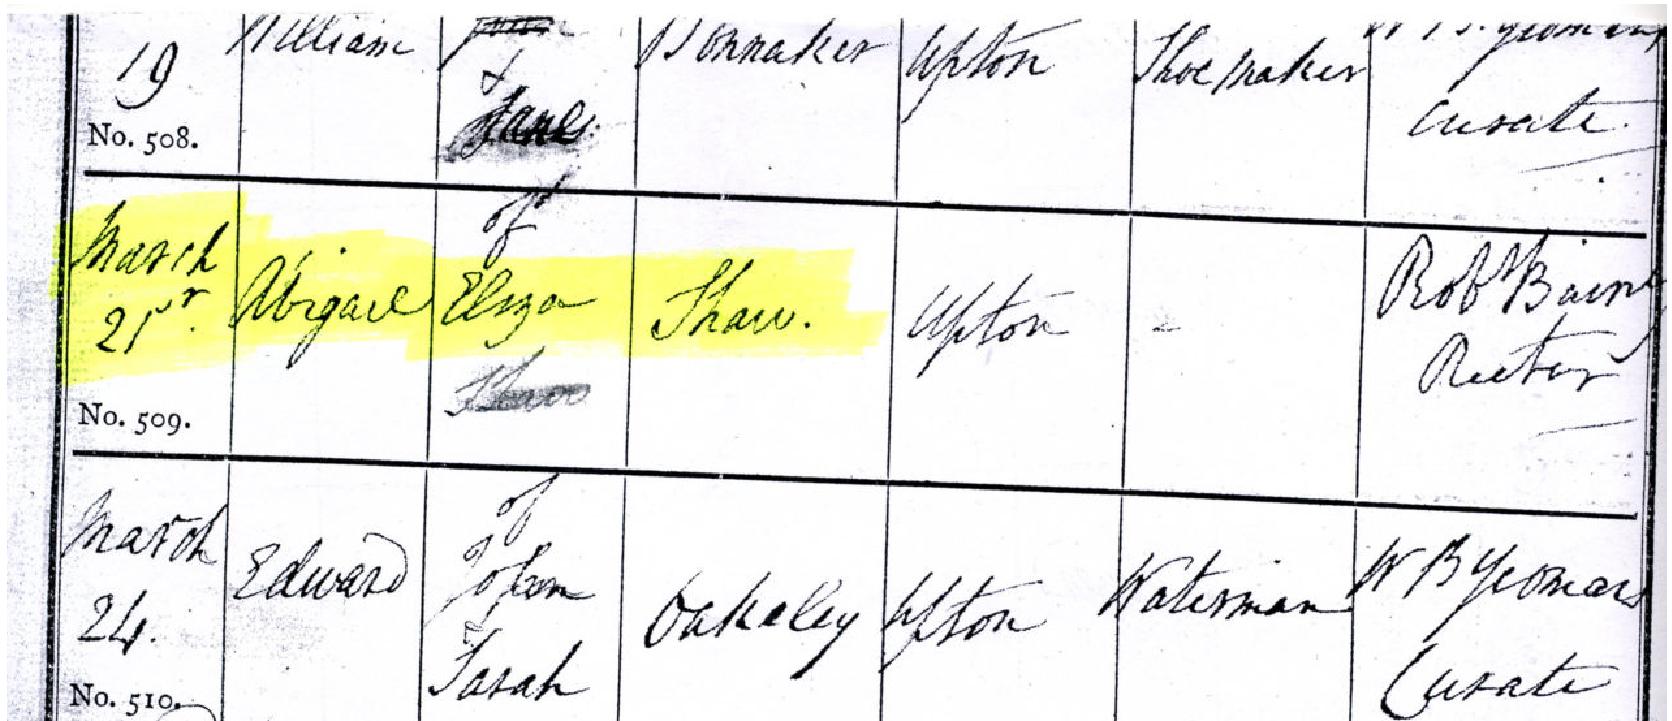 19 William
& Jane Bonnaker Upton Shoemaker W B Yeomans
Curate
No. 508.
March 21st Abigail of Eliza Shaw. Upton - Robt Baines
Rector
No. 509.
March 24. Edward of John Sarah Oakeley Upton Waterman W B Yeomans
Curate
No. 510.